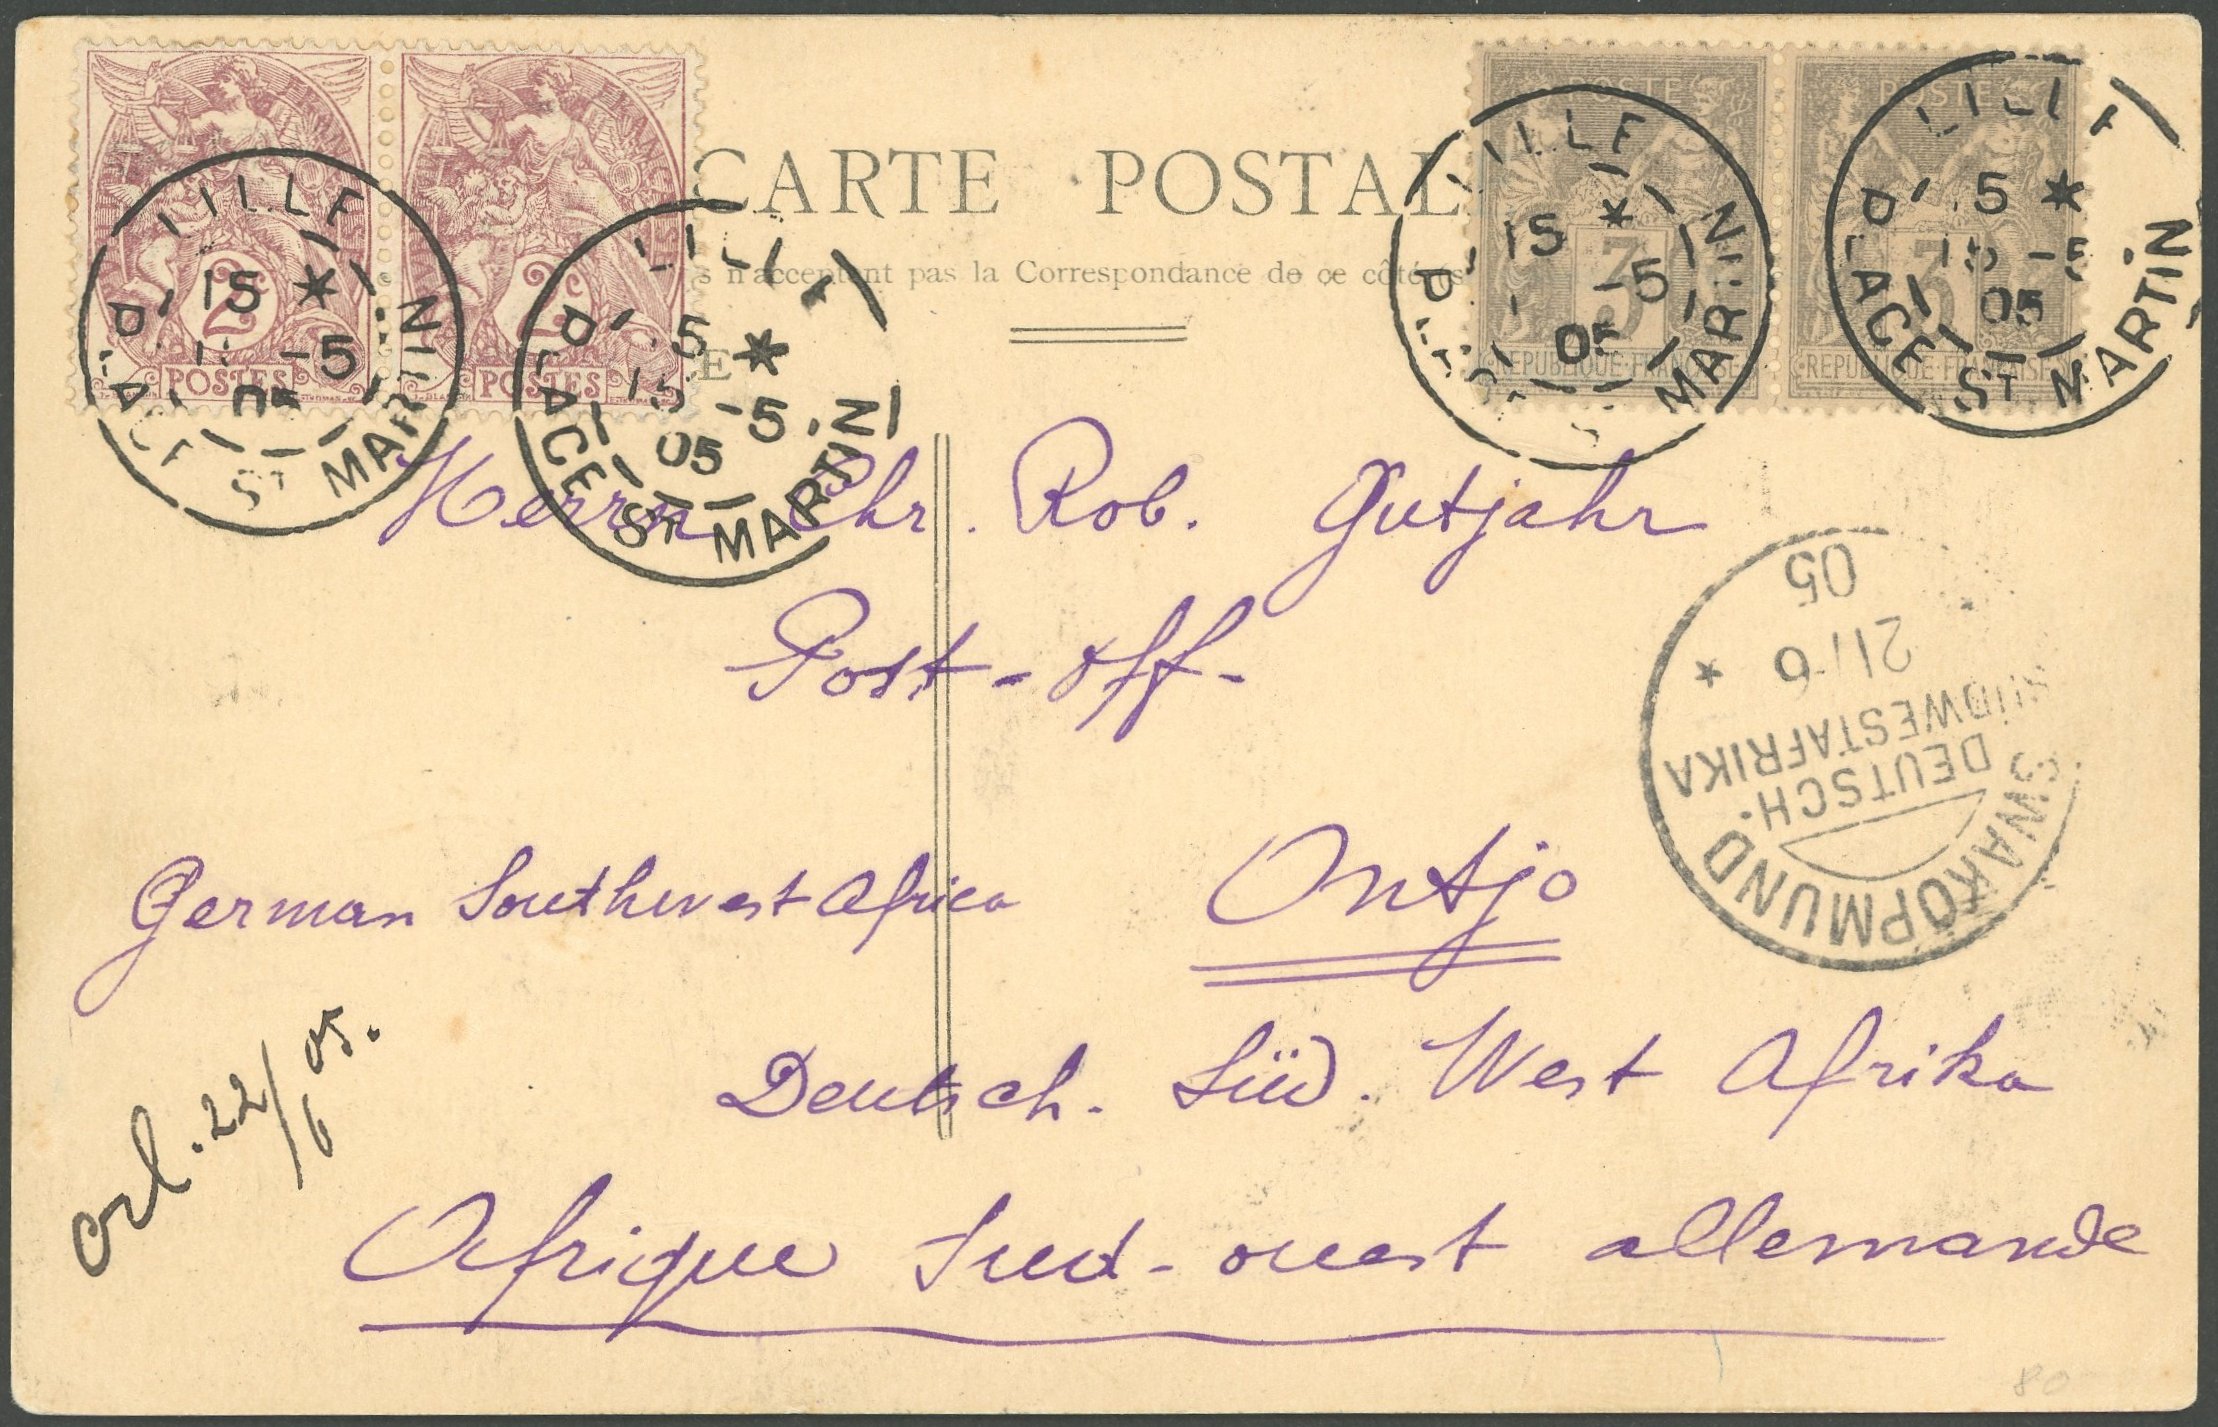 CARTE POSTAL
s n'acceptant pas la Correspondance de ce côté
E
2
POSTES
2
POSTES
POSTE
3
REPUBLIQUE FRANÇAISE
POSTE
3
REPUBLIQUE FRANÇAISE
LILLE
15 *
-5
05
PLACE ST MARTIN
LILLE
15 *
15 -5
05
PLACE ST MARTIN
LILLE
15 *
-5
05
PLACE ST MARTIN
LILLE
15 *
15 -5
05
PLACE ST MARTIN
Herrn Chr. Rob. Gutjahr
Post-Off-
German Southwest Africa
Ontjo
Deutsch. Süd. West Afrika
Afrique Sud-ouest allemande
22/6 05.
SWAKOPMUND
DEUTSCH-
SÜDWESTAFRIKA
21/6
05
80